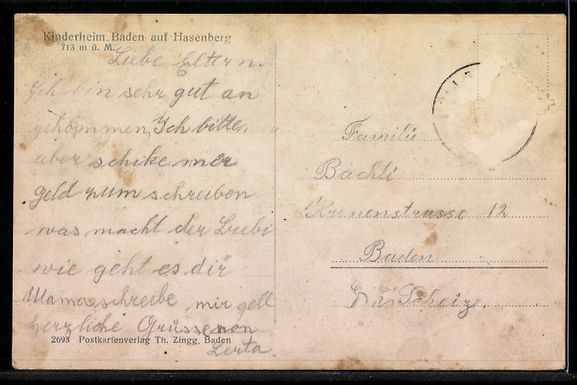 Kinderheim Baden auf Hasenberg
713 m ü. M.
Liebe Eltern
Ich bin sehr gut an
gekommen, Ich bitte
aber schike mir
geld zum schreiben
was macht der Bubi
wie geht es dir
Mama schreibe mir gell
herzliche Grüsse von
2693 Postkartenverlag Th. Zingg, Baden
Familie
Bächli
12
Baden